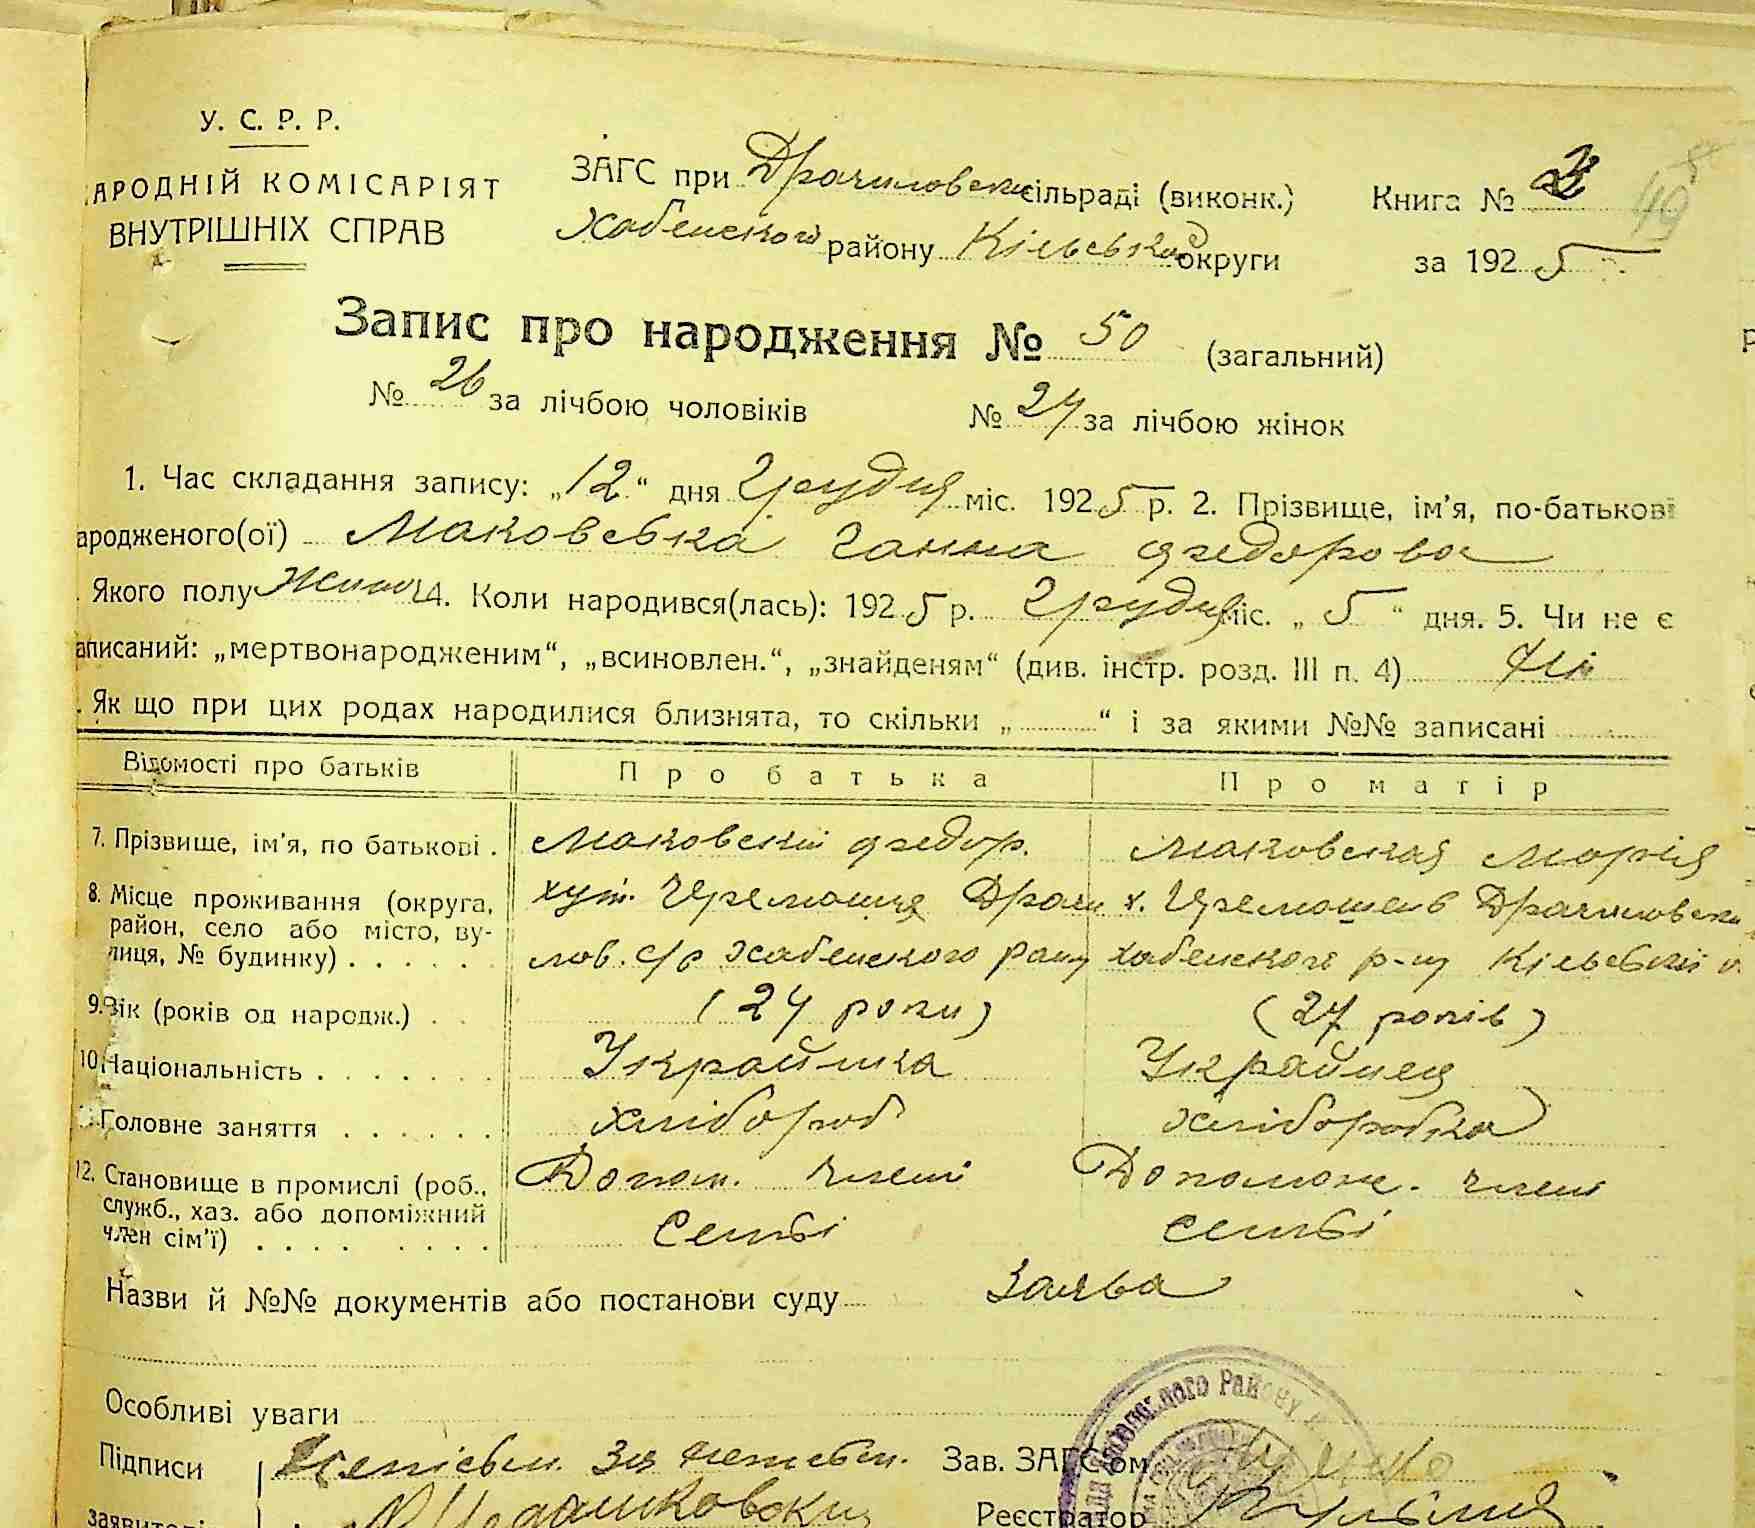 У. С. Р. Р.
АРОДНІЙ КОМІСАРІЯТ
ВНУТРІШНІХ СПРАВ
ЗАГС при Драчиловській сільраді (виконк.)
Хабенского району Кіівської округи
Книга №
49
за 1925
Запис про народження № 50 (загальний)
№ 26 за лічбою чоловіків № 24 за лічбою жінок
1. Час складання запису: „12“ дня Грудня міс. 1925 р. 2. Прізвище, ім'я, по-батькові
ародженого(ої) Маковська Ганна Федорова
Якого полу Жіноч 4. Коли народився(лась): 1925 р. Грудня міс. „5“ дня. 5. Чи не є
аписаний: „мертвонародженим“, „всиновлен.“, „знайденям“ (див. інстр. розд. III п. 4) Ні
. Як що при цих родах народилися близнята, то скільки „ “ і за якими №№ записані
Відомості про батьків Про батька Про матір
7. Прізвище, ім'я, по батькові . Маковський Федор. Маковская Марія
8. Місце проживання (округа, район, село або місто, вулиця, № будинку) . . . . .
хут. Черемошня Драчилов. с/р Хабенского рану
х. Черемошня Драчиловск Хабенского р-ну Кіівській
9. Вік (років од народж.) . . (24 роки) (27 років)
10. Національність . . . . . . . Українка Українец
Головне заняття . . . . . . хлібороб хлібороб́ка
12. Становище в промислі (роб., служб., хаз. або допоміжний член сім'ї) . . . . . . . .
Допом. член семьі
Допомож. член семьі
Назви й №№ документів або постанови суду Заява
Особливі уваги
Підписи за Зав. ЗАГСом
заявителі Реєстратор